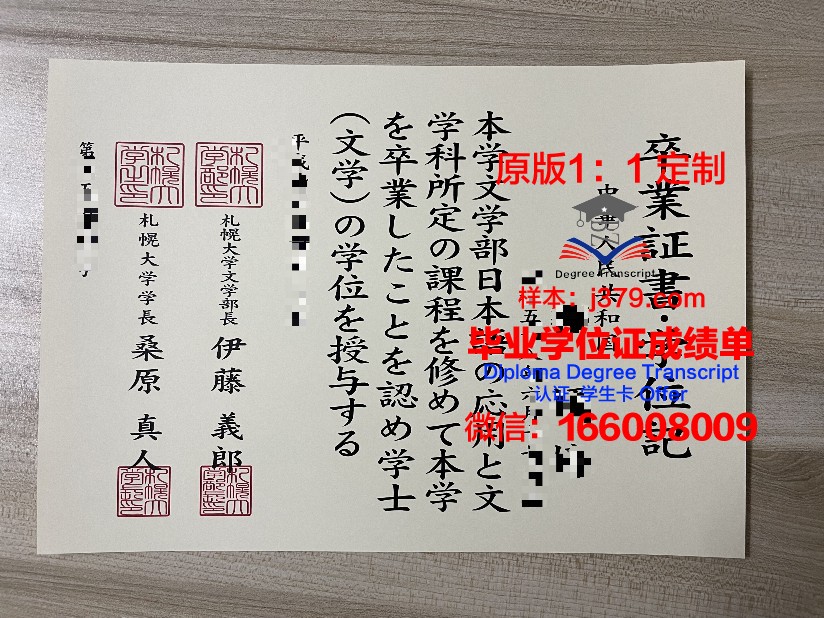 卒業証書・学位記
中華人民共和国
本学文学部日本語の応用と文
学科所定の課程を修めて本学
を卒業したことを認め学士
(文学)の学位を授与する
平成
札幌大学文学部長 伊藤義郎
札幌大学学長 桑原真人
第
原版1：1定制
Degree Transcript
样本：j379.com
毕业学位证成绩单
Diploma Degree Transcript
认证 学生卡 Offer
微信：166008009